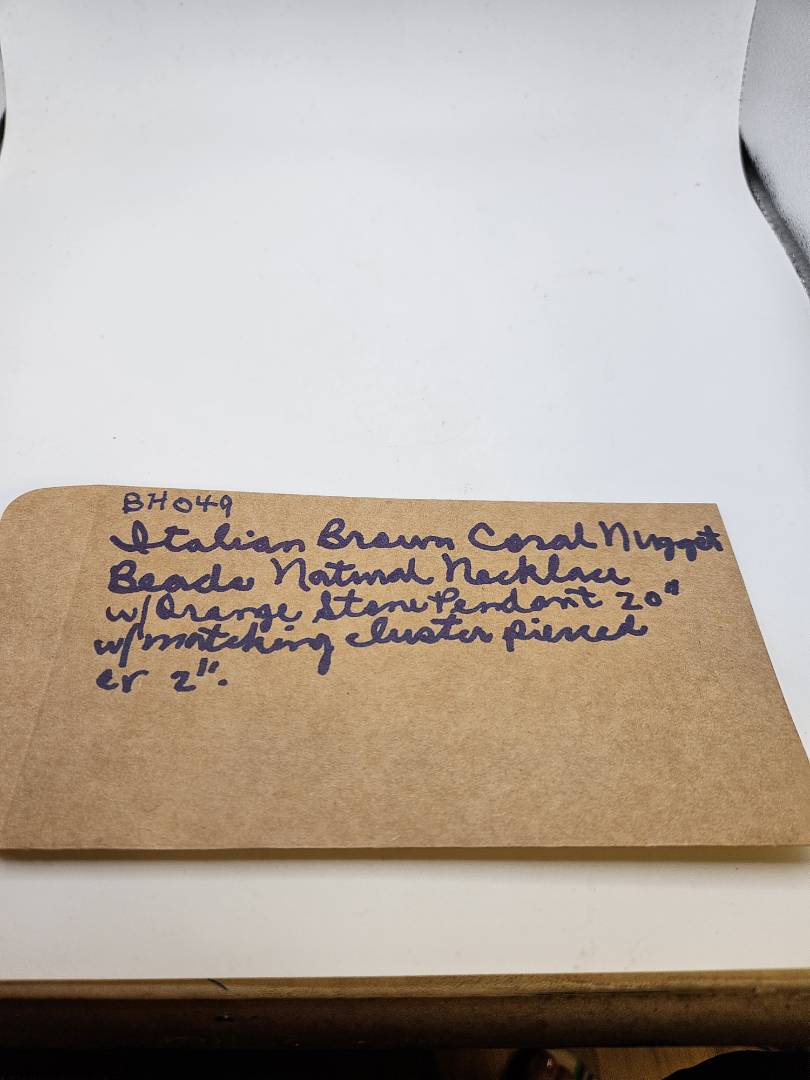 BH049
Italian Brown Coral Nugget
Beads Natural Necklace
w/Orange Stone Pendant 20"
w/matching cluster pierced
er 2".